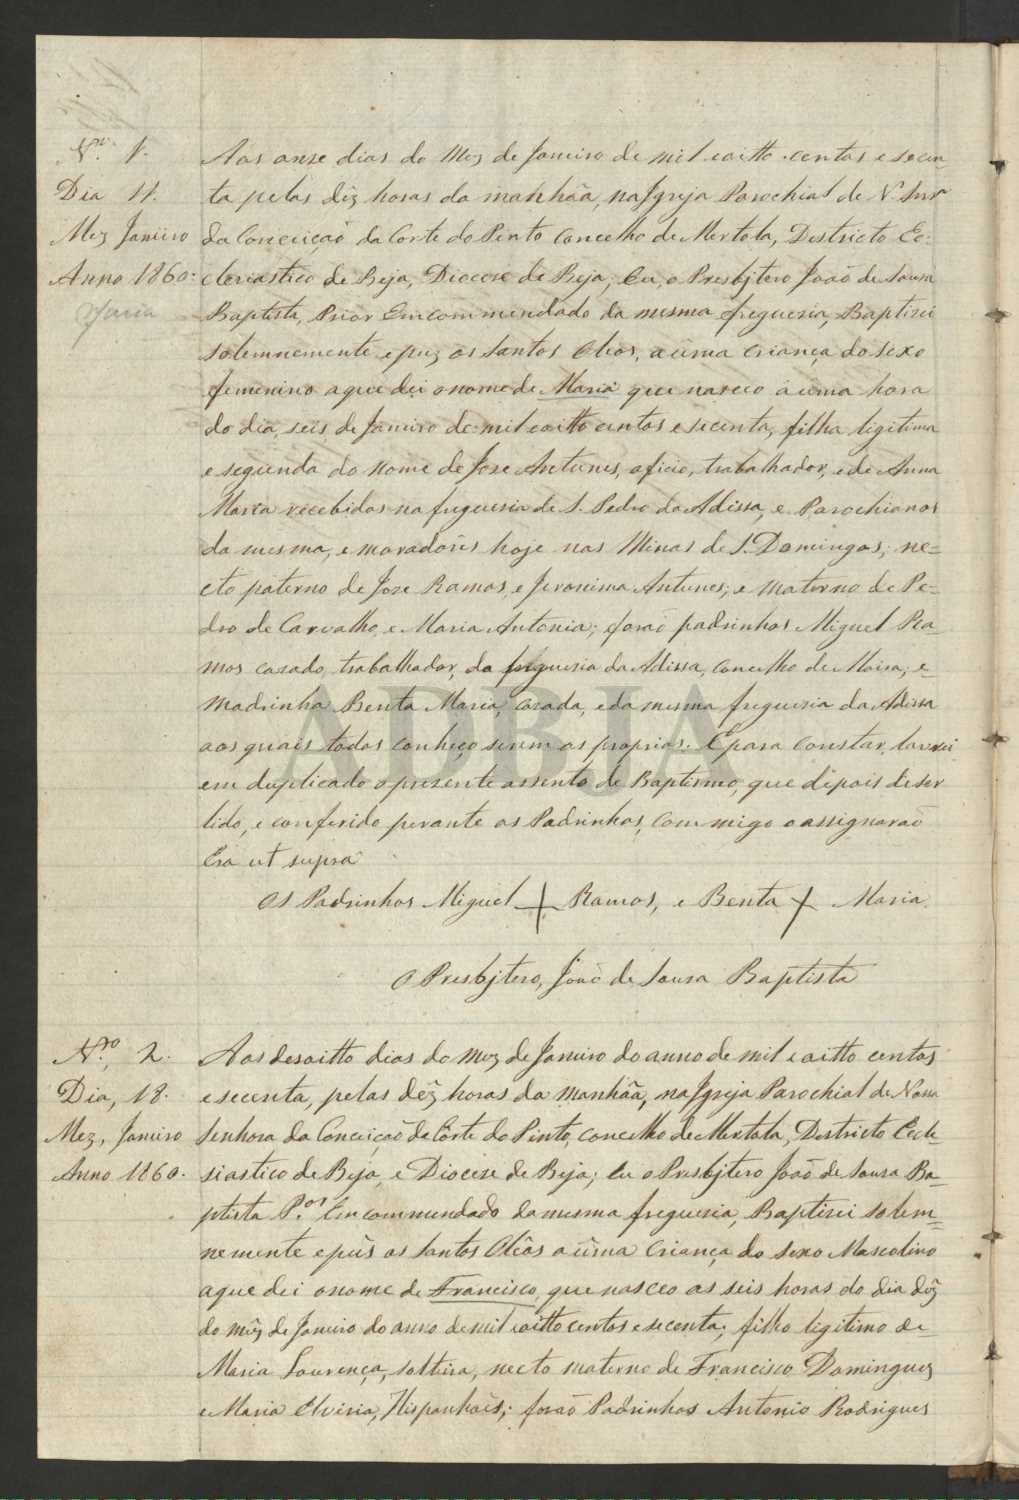 Nº 1.
Dia 11.
Mez Janeiro
Anno 1860.
Maria
Aos onze dias do Mez de Janeiro de mil eoitto centos e secen-
ta pelas déz horas da manhãa, na Igreja Parochial de N. Snrª
da Conceiçaõ da Corte do Pinto Concelho de Mertola, Districto Ec-
cleziastico de Beja, Diocese de Beja; Eu, o Presbjtero Joaõ de Souza
Baptista, Prior Emcommendado da mesma freguezia, Baptizei
solemnemente e puz os Santos Oleos, a uma criança do sexo
femenino aque dei o nome de Maria que nasceo á uma hora
do dia seis de Janeiro de mil eoitto centos e secenta, filha legitima
e segunda do nome de Joze Antunes, oficio, trabalhador, e de Anna
Maria recebidos na freguezia de S. Pedro da Adissa, e Parochianos
da mesma, e moradores hoje nas Minas de S. Domingos; ne-
cto paterno de Joze Ramos, e Jeronima Antunes; e materno de Pe-
dro de Carvalho, e Maria Antonia; foraõ padrinhos Miguel Ra-
mos cazado, trabalhador, da freguezia da Adissa, concelho de Moira, e
Madrinha Benta Maria, cazada, e da mesma freguezia da Adissa
aos quais todos conheço serem os proprios. E para constar lavrei
em duplicado o prezente assento de Baptismo, que depois de ser
lido, e conferido perante os Padrinhos, com migo o assignaraõ
Era ut supra
Os Padrinhos Miguel + Ramos, e Benta + Maria.
O Presbjtero, Joaõ de Souza Baptista
Nº 2.
Dia, 18.
Mez, Janeiro
Anno 1860.
Aos desoitto dias do mez de Janeiro do anno de mil e oitto centos
e secenta, pelas déz horas da manhãa, na Igreja Parochial de Nossa
Senhora da Conceiçaõ da Côrte do Pinto, concelho de Mertola, Destricto Ecle-
siastico de Beja, e Diocese de Beja; Eu o Presbjtero Joaõ de Souza Ba-
ptista P.or Emcommendado da mesma freguezia, Baptizei solem-
nemente e pûs os Santos Olêos a uma Criança do Sexo Mascolino
aque dei o nome de Francisco, que nasceo as seis horas do dia déz
do mêz de Janeiro do anno de mil eoitto centos e secenta, filho legitimo de
Maria Lourença, solteira, necto materno de Francisco Domingues
e Maria Elviria, Hespanhois; foraõ Padrinhos Antonio Rodrigues
ADBJA